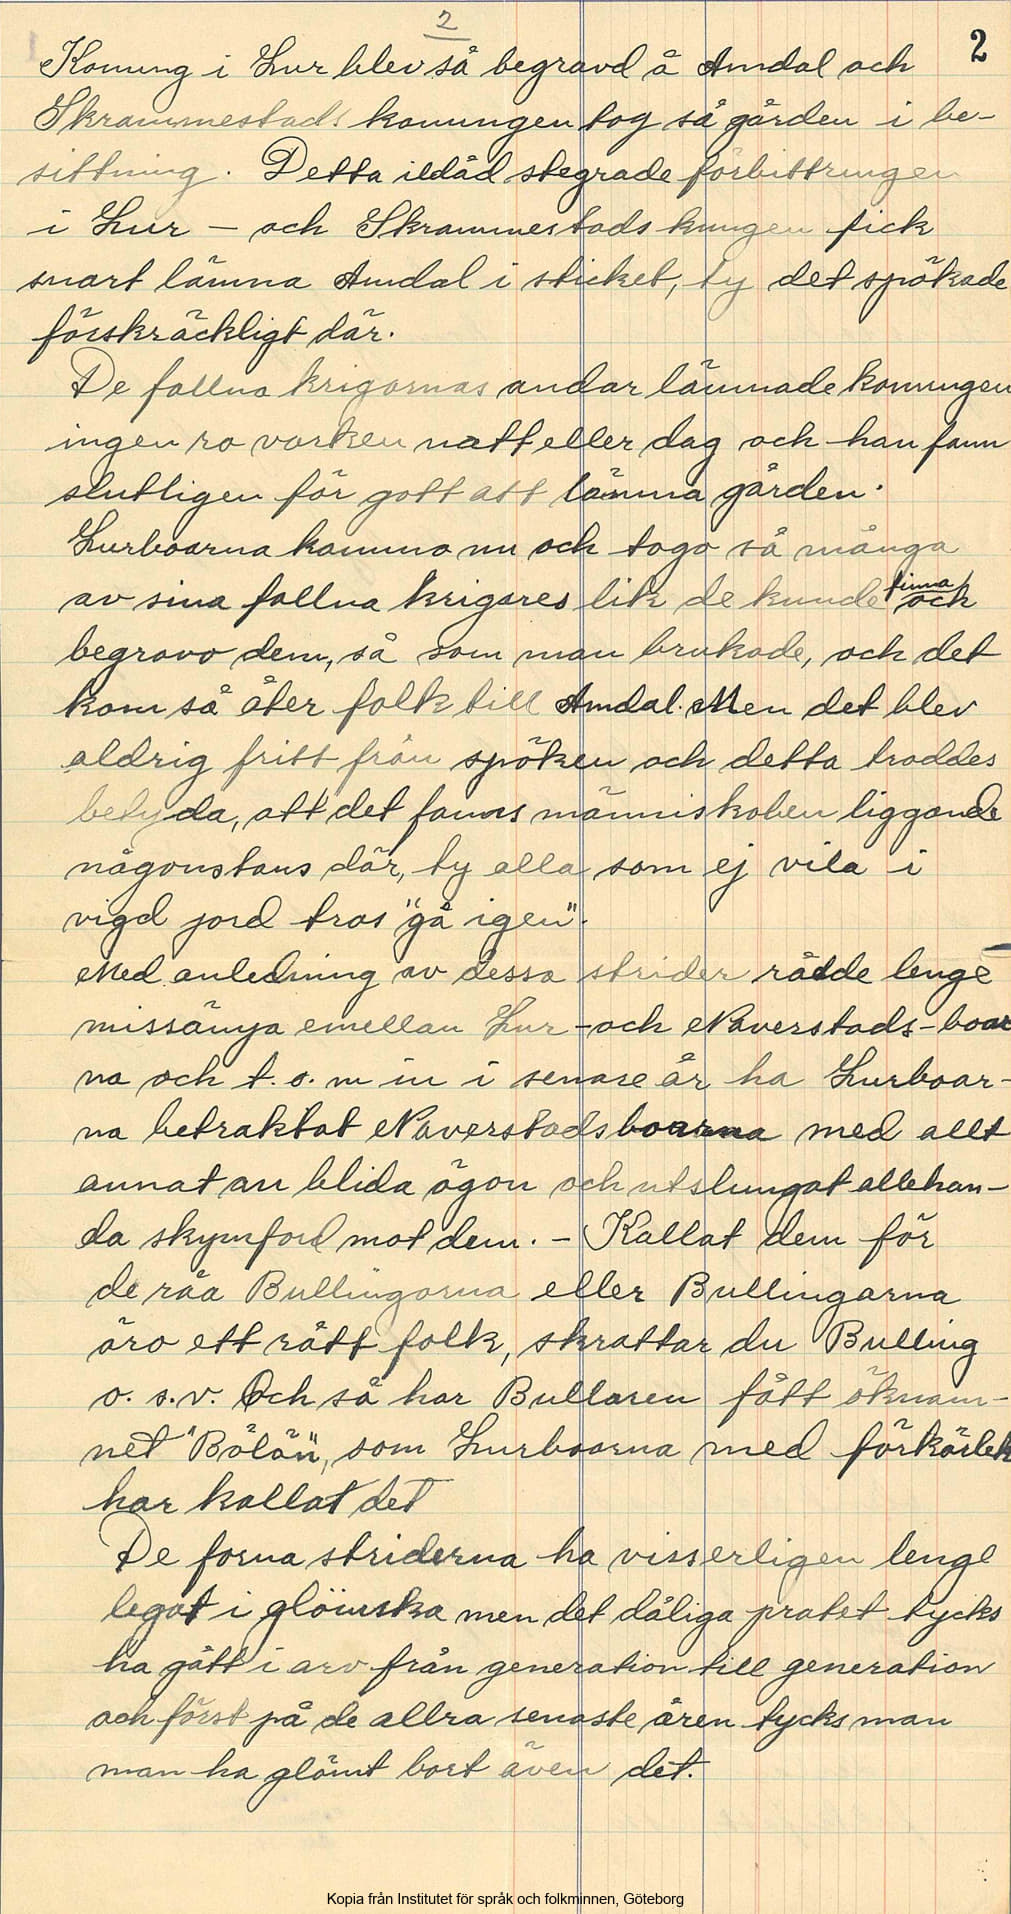 2
2
Konung i Lur blev så begravd å Amdal och
Skrammestads konungen tog så gården i be-
sittning. Detta ildåd stegrade förbittringen
i Lur – och Skrammestads kungen fick
snart lämna Amdal i sticket, ty det spökade
förskräckligt där.
De fallna krigarnas andar lämnade konungen
ingen ro varken natt eller dag och han fann
slutligen för gott att lämna gården.
Lurboarna kommo nu och togo så många
av sina fallna krigares lik de kunde finna och
begravo dem, så som man brukade, och det
kom så åter folk till Amdal. Men det blev
aldrig fritt från spöken och detta troddes
betyda, att det fanns människoben liggande
någonstans där, ty alla som ej vila i
vigd jord tros "gå igen".
Med anledning av dessa strider rådde lenge
missämja emellan Lur - och Naverstads-boar
na och t.o.m in i senare år ha Lurboar-
na betraktat Naverstadsboarna med allt
annat än blida ögon och utslungat allehan-
da skymford mot dem. – Kallat dem för
de råa Bullingarna eller Bullingarna
äro ett rått folk, skrattar du Bulling
o. s.v. Och så har Bullaren fått öknam-
net "Bölön", som Lurboarna med förkärlek
har kallat det
De forna striderna ha visserligen lenge
legat i glömska men det dåliga pratet tycks
ha gått i arv från generation till generation
och först på de allra senaste åren tycks man
man ha glömt bort även det.
Kopia från Institutet för språk och folkminnen, Göteborg